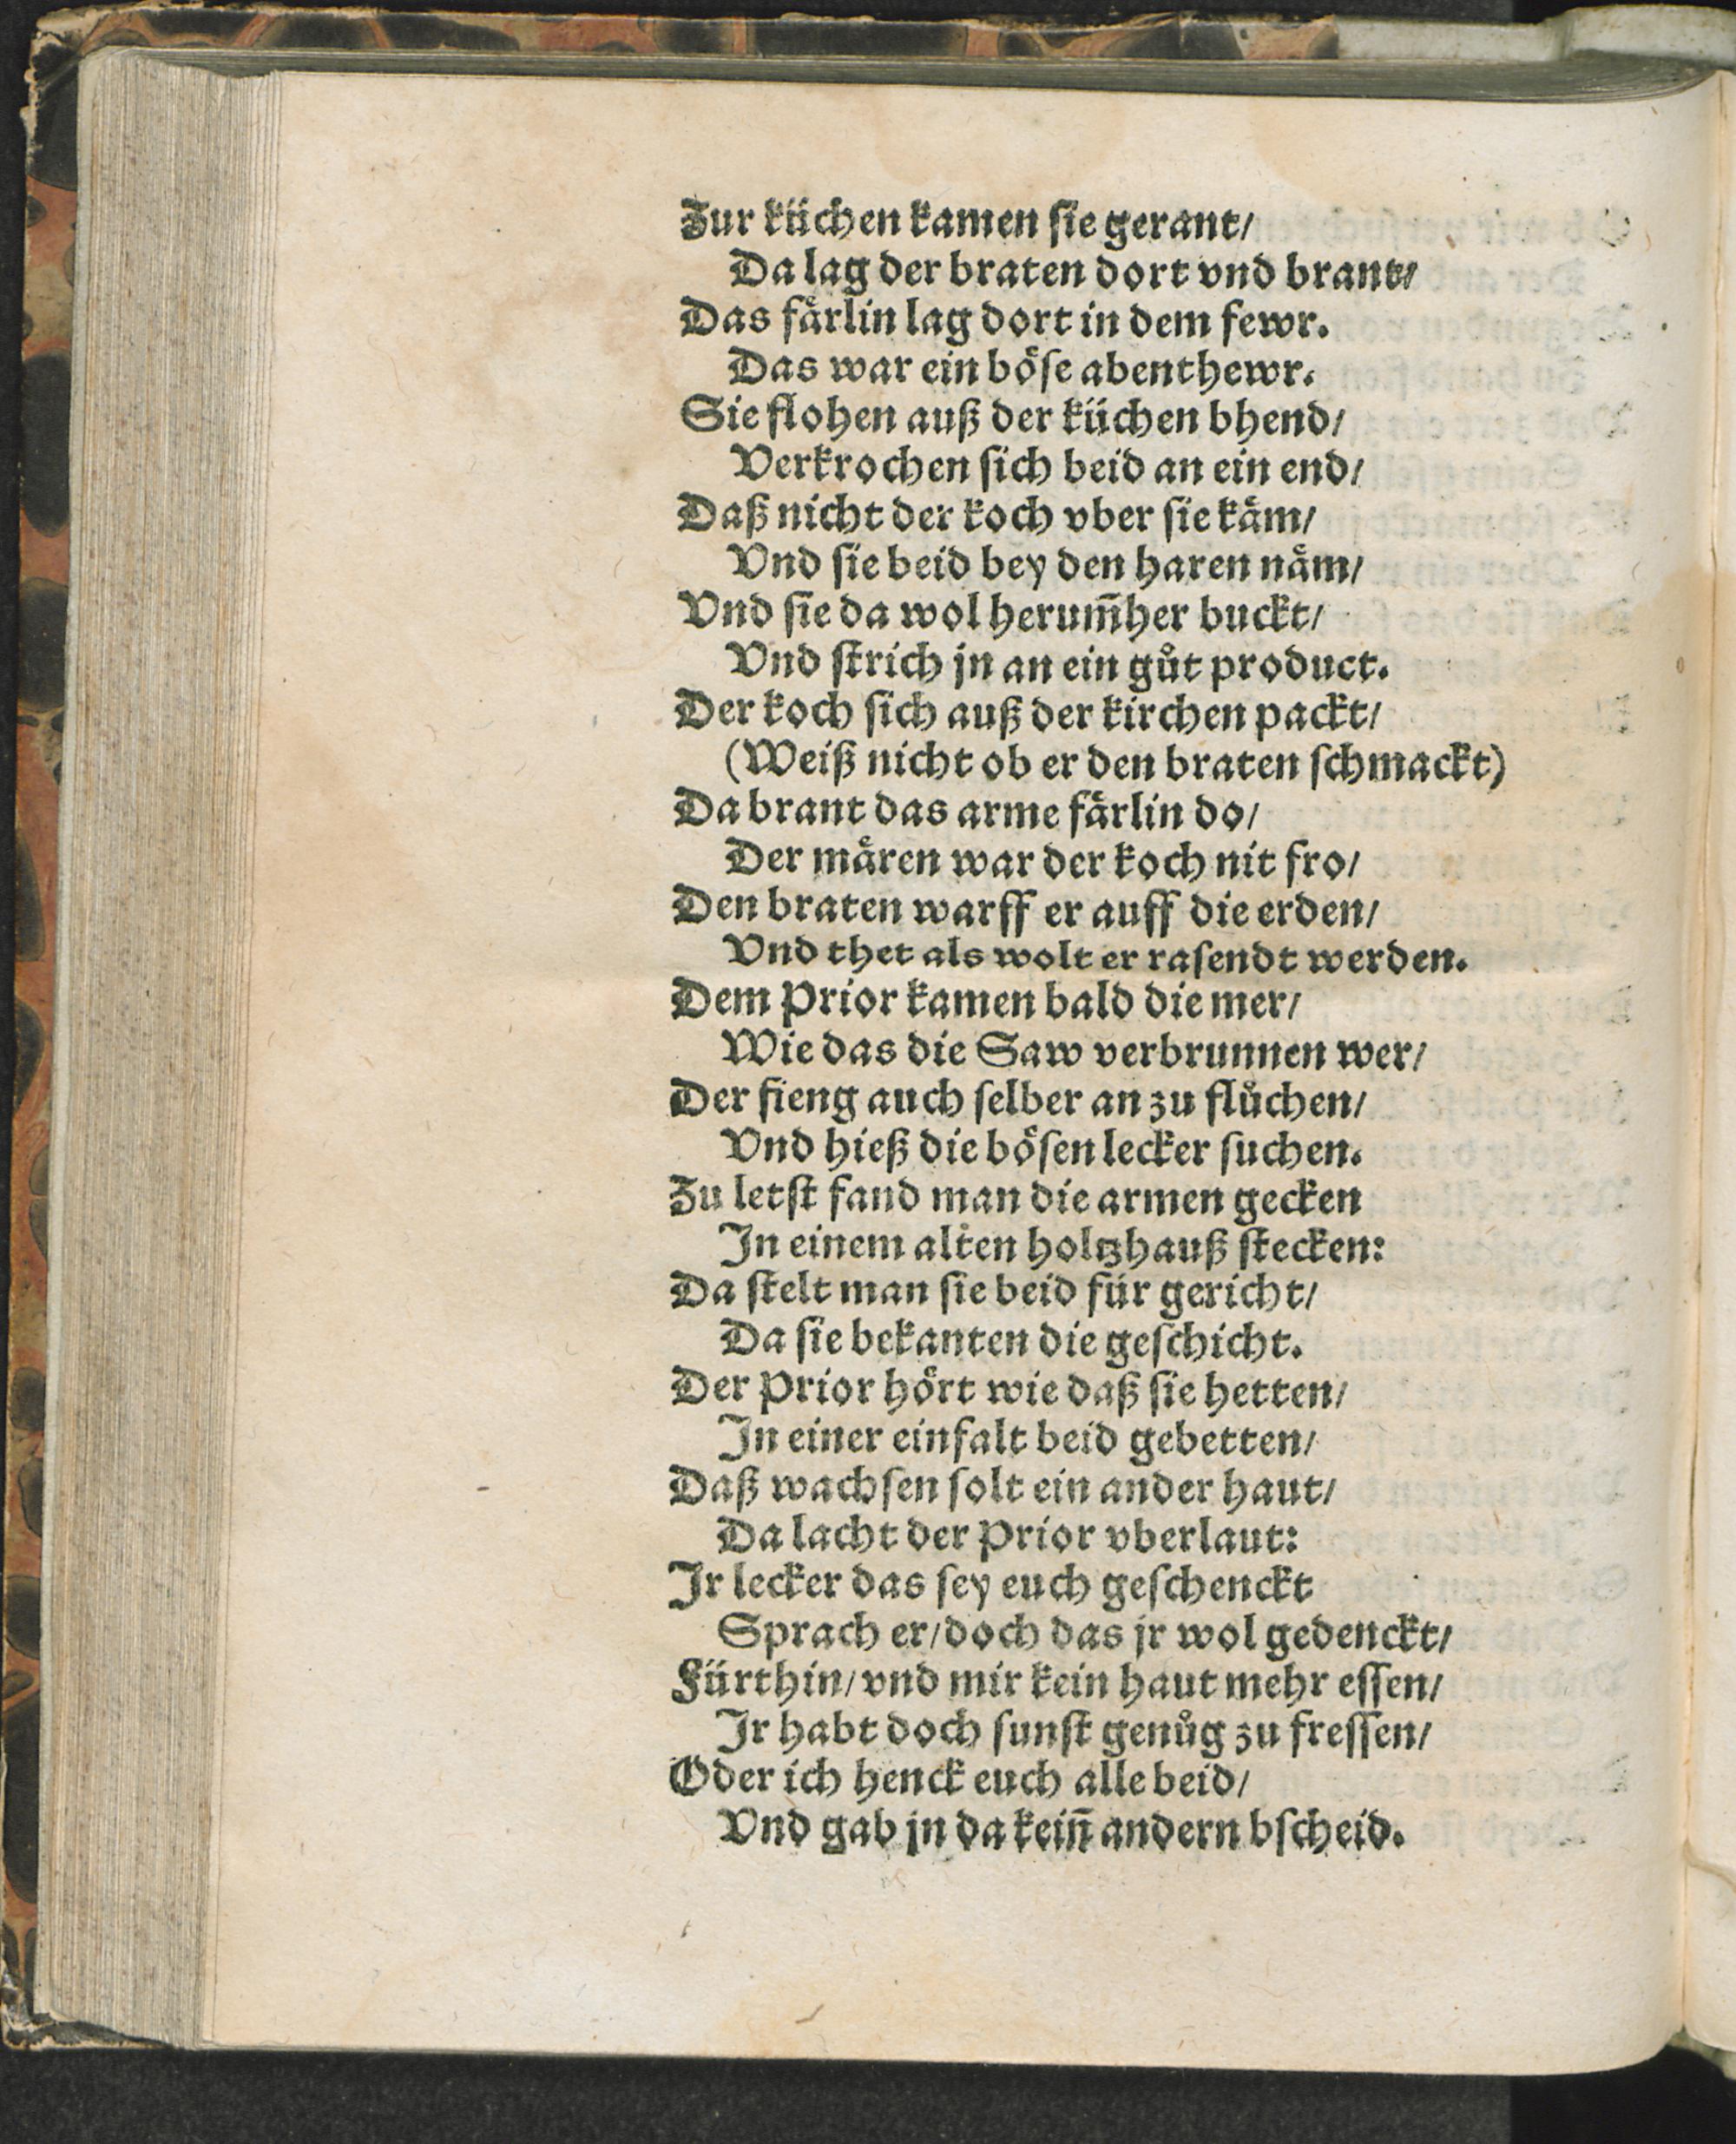 Zur küchen kamen ſie gerant/
Da lag der braten dort vnd brant/
Das faͤrlin lag dort in dem fewr.
Das war ein boͤſe abenthewr.
Sie flohen auß der küchen bhend/
Verkrochen ſich beid an ein end/
Daß nicht der koch vber ſie kaͤm/
Vnd ſie beid bey den haren naͤm/
Vnd ſie da wol herum̄her buckt/
Vnd ſtrich jn an ein guͦt product.
Der koch ſich auß der kirchen packt/
(Weiß nicht ob er den braten ſchmackt)
Da brant das arme faͤrlin do/
Der maͤren war der koch nit fro/
Den braten warff er auff die erden/
Vnd thet als wolt er raſendt werden.
Dem Prior kamen bald die mer/
Wie das die Saw verbrunnen wer/
Der fieng auch ſelber an zu fluͦchen/
Vnd hieß die boͤſen lecker ſuchen.
Zu letſt fand man die armen gecken
In einem alten holtzhauß ſtecken:
Da ſtelt man ſie beid für gericht/
Da ſie bekanten die geſchicht.
Der Prior hoͤrt wie daß ſie hetten/
In einer einfalt beid gebetten/
Daß wachſen ſolt ein ander haut/
Da lacht der Prior vberlaut:
Ir lecker das ſey euch geſchenckt
Sprach er/ doch das jr wol gedenckt/
Fürthin/ vnd mir kein haut mehr eſſen/
Ir habt doch ſunſt genuͦg zu freſſen/
Oder ich henck euch alle beid/
Vnd gab jn da kein̄ andern bſcheid.